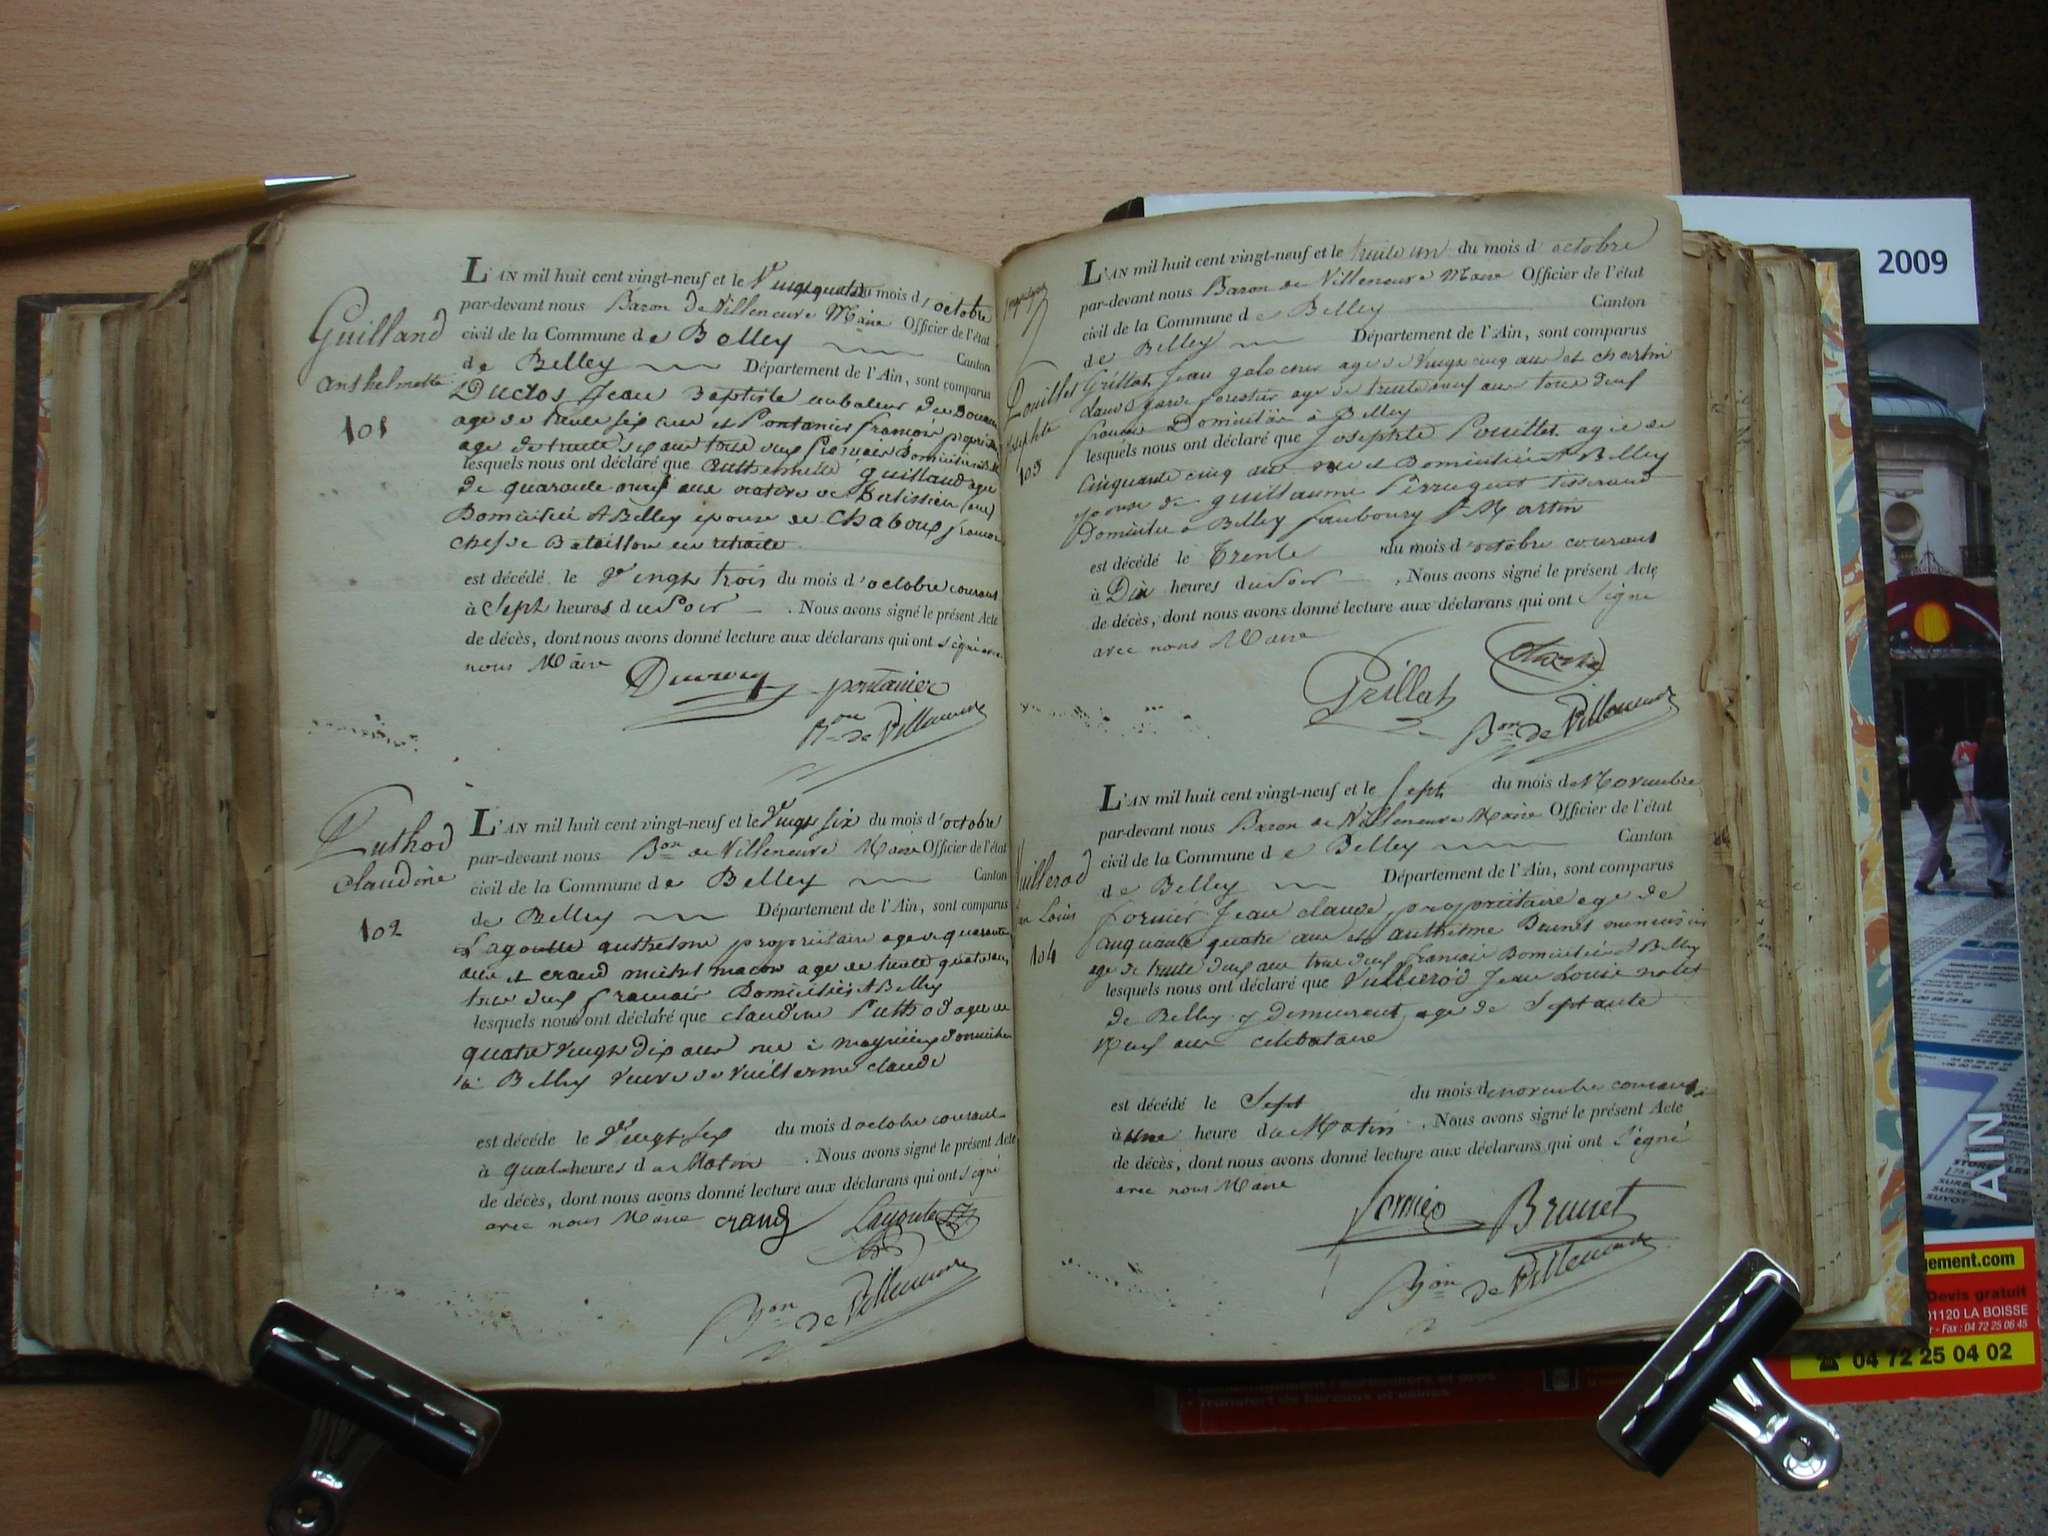 Guilland
anthelmette
101
L'AN mil huit cent vingt-neuf et le Vingt quatre du mois d'octobre
par-devant nous Baron de Villeneuve Maire Officier de l'état
civil de la Commune de Belley Canton
de Belley Département de l'Ain, sont comparus
Jean Baptiste
age de trente six ans et Pontanier françois
age de trente six ans tous deux français
lesquels nous ont déclaré que guilland agée
de quarante neuf ans native de (ain)
Domiciliée A Belley epouse de Chaboux
chef de Bataillon en retraite
est décédé le Vingt trois du mois d'octobre courant
à Sept heures du Soir . Nous avons signé le présent Acte
de décès, dont nous avons donné lecture aux déclarans qui ont signé avec
nous Maire
pontanier
Bon de Villeneuve
Puthod
claudine
102
L'AN mil huit cent vingt-neuf et le Vingt six du mois d'octobre
par-devant nous Bon de Villeneuve Maire Officier de l'état
civil de la Commune de Belley Canton
de Belley Département de l'Ain, sont comparus
Lagoutte anthelme propriétaire age de quarante
ans et crand michel macon age de trente quatre ans
tous deux français Domiciliés A Belley
lesquels nous ont déclaré que claudine Puthod agée de
quatre vingt dix ans née à
à Belley veuve de Vuillerme claude
est décédé le Vingt six du mois d octobre courant
à quatre heures du Matin . Nous avons signé le présent Acte
de décès, dont nous avons donné lecture aux déclarans qui ont signé
avec nous Maire crand Lagoutte
Bon de Villeneuve
Pouillet
Josephte
103
L'AN mil huit cent vingt-neuf et le trente un du mois d'octobre
par-devant nous Baron de Villeneuve Maire Officier de l'état
civil de la Commune de Belley Canton
de Belley Département de l'Ain, sont comparus
Grillat Jean galocher age de vingt cinq ans et
garde forestier age de trente neuf ans tous deux
français Domiciliés à Belley
lesquels nous ont déclaré que Josephte Pouillet agée de
Cinquante cinq ans née et Domiciliée A Belley
epouse de guillaume Perruquet Tisserand
Domicilié à Belley faubourg St Martin
est décédé le Trente du mois d'octobre courant
à Dix heures du Soir . Nous avons signé le présent Acte
de décès, dont nous avons donné lecture aux déclarans qui ont Signé
avec nous Maire
Grillat
Bon de Villeneuve
104
L'AN mil huit cent vingt-neuf et le Sept du mois de Novembre
par-devant nous Baron de Villeneuve Maire Officier de l'état
civil de la Commune de Belley Canton
de Belley Département de l'Ain, sont comparus
fornier Jean claude propriétaire age de
cinquante quatre ans et anthelme Brunet menuisier
age de trente deux ans tous deux français Domiciliés A Belley
lesquels nous ont déclaré que Vuillerod Jean Louis natif
de Belley y demeurant age de Septante
Neuf ans celibataire
est décédé le Sept du mois de novembre courant
à une heure du Matin . Nous avons signé le présent Acte
de décès, dont nous avons donné lecture aux déclarans qui ont Signé
avec nous Maire
fornier Brunet
Bon de Villeneuve
2009
AIN
gement.com
Devis gratuit
01120 LA BOISSE
Fax : 04 72 25 06 45
04 72 25 04 02